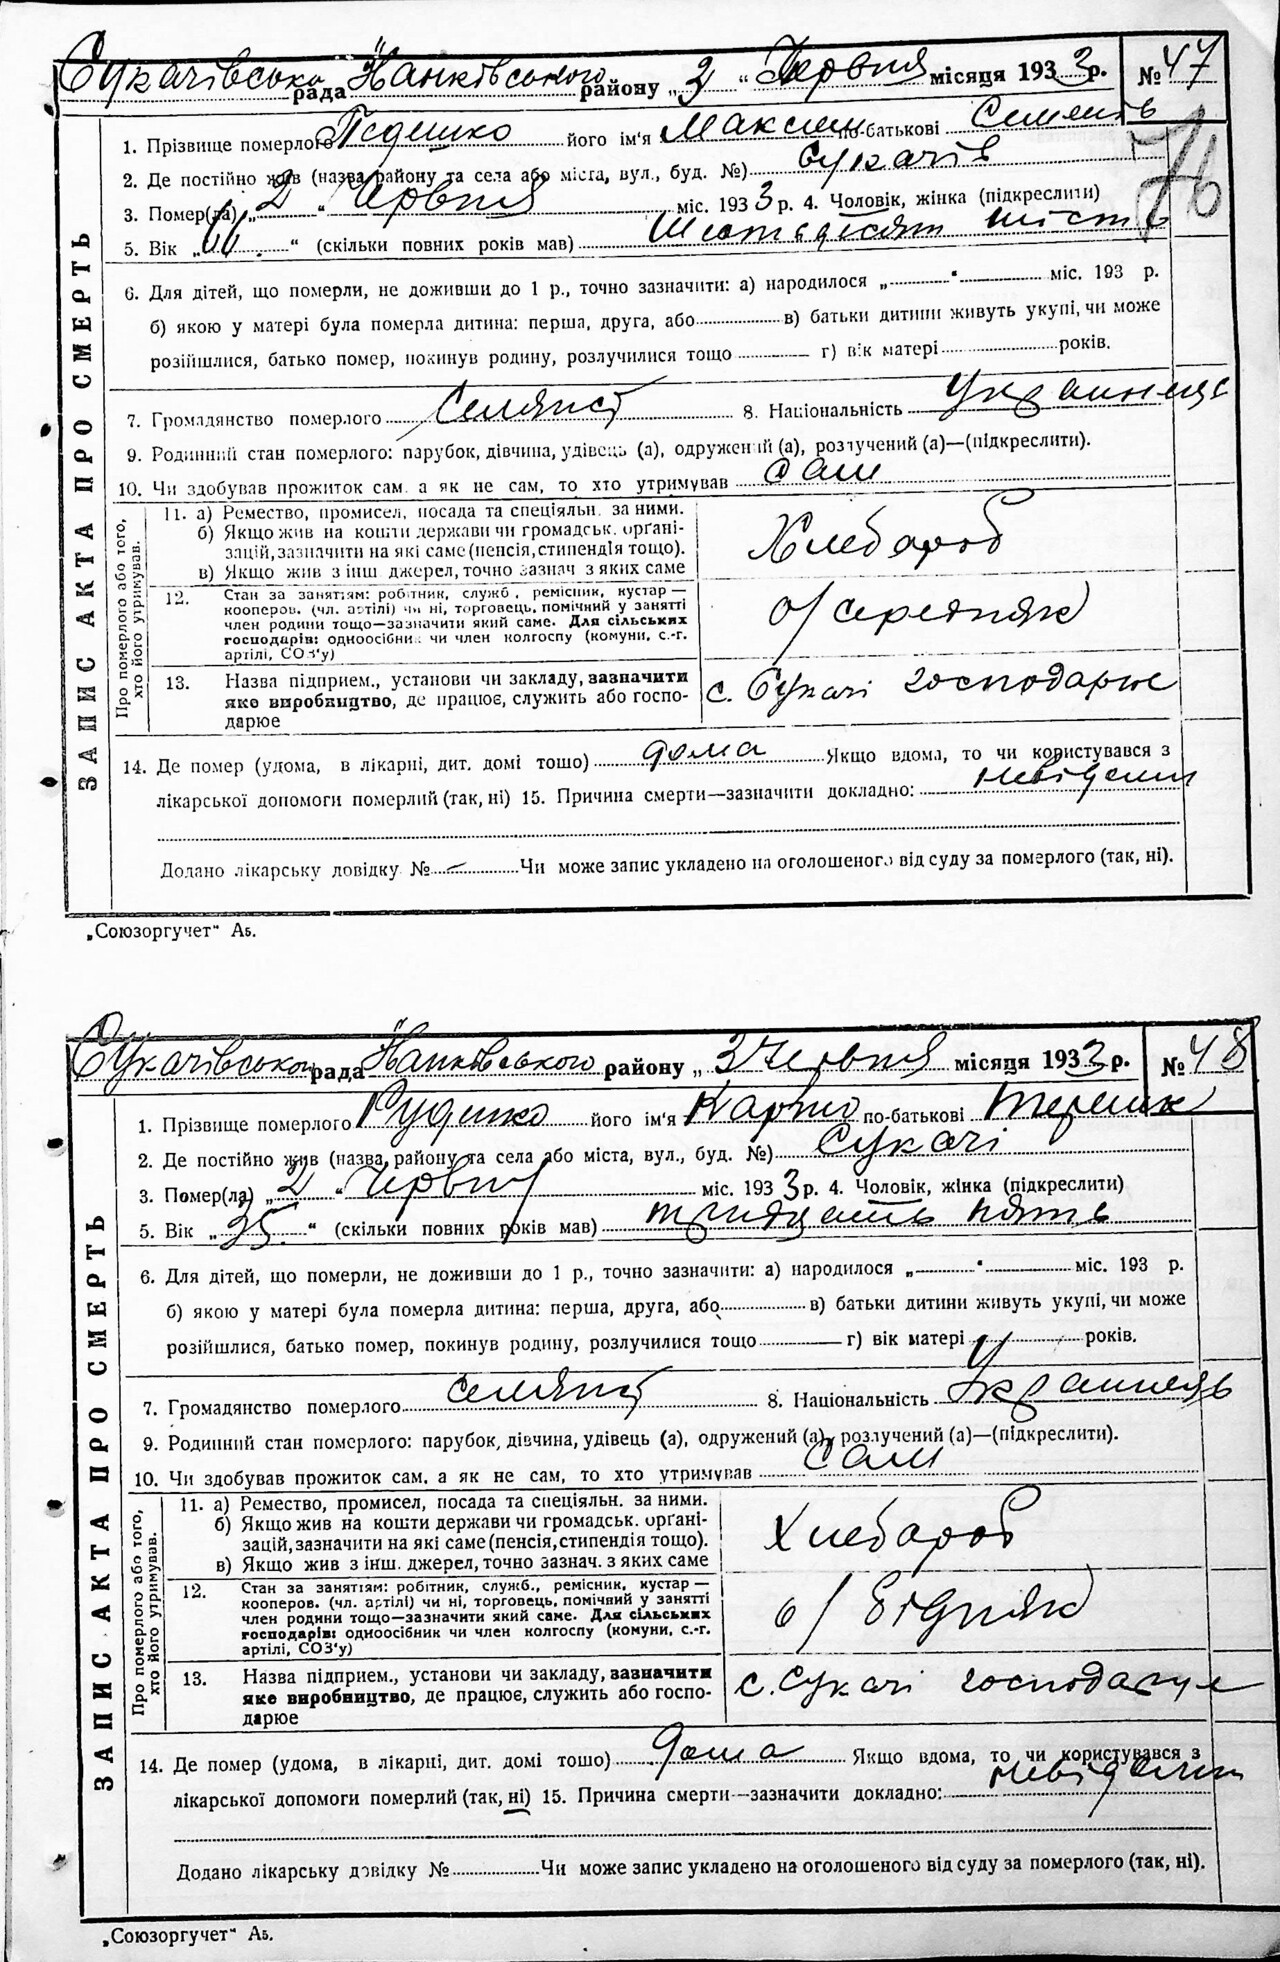 Сукачівська рада Іванківського району „ 3 “ Червня місяця 1933 р. № 47
76
ЗАПИС АКТА ПРО СМЕРТЬ
1. Прізвище померлого Педешко його ім'я Максим по-батькові Семенів
2. Де постійно жив (назва району та села або міста, вул., буд. №) Сукачів
3. Помер(ла) „ 2 “ Червня міс. 193 3 р. 4. Чоловік, жінка (підкреслити)
5. Вік „ 66 “ (скільки повних років мав) Шестьдесят шість
6. Для дітей, що померли, не доживши до 1 р., точно зазначити: а) народилося „ “ міс. 193 р.
б) якою у матері була померла дитина: перша, друга, або в) батьки дитини живуть укупі, чи може
розійшлися, батько помер, покинув родину, розлучилися тощо г) вік матері років.
7. Громадянство померлого Селянст 8. Національність Украинець
9. Родинний стан померлого: парубок, дівчина, удівець (а), одружений (а), розлучений (а)—(підкреслити).
10. Чи здобував прожиток сам. а як не сам, то хто утримував сам
Про померлого або того, хто його утримував.
11. а) Ремество, промисел, посада та спеціяльн. за ними.
б) Якщо жив на кошти держави чи громадськ. орґані-
зацій, зазначити на які саме (пенсія, стипендія тощо).
в) Якщо жив з інш. джерел, точно зазнач. з яких саме
Хлебароб
12. Стан за заняттям: робітник, служб., ремісник, кустар —
кооперов. (чл. артілі) чи ні, торговець, помічний у занятті
член родини тощо—зазначити який саме. Для сільських
господарів: одноосібник чи член колгоспу (комуни, с.-г.
артілі, СОЗ'у)
о/середняк
13. Назва підприєм., установи чи закладу, зазначити
яке виробництво, де працює, служить або госпо-
дарює
с. Сукачі господарює
14. Де помер (удома, в лікарні, дит. домі тощо) дома Якщо вдома, то чи користувався з
лікарської допомоги померлий (так, ні) 15. Причина смерти—зазначити докладно: невідомо
Додано лікарську довідку № — Чи може запис укладено на оголошеного від суду за померлого (так, ні).
„Союзоргучет“ А5.
Сукачівська рада Іванківського району „ 3 Червня місяця 1933 р. № 48
ЗАПИС АКТА ПРО СМЕРТЬ
1. Прізвище померлого Рудешко його ім'я Карпо по-батькові
2. Де постійно жив (назва району та села або міста, вул., буд. №) Сукачі
3. Помер(ла) „ 2 “ Червня міс. 193 3 р. 4. Чоловік, жінка (підкреслити)
5. Вік „ 35 “ (скільки повних років мав) тридцать пять
6. Для дітей, що померли, не доживши до 1 р., точно зазначити: а) народилося „ “ міс. 193 р.
б) якою у матері була померла дитина: перша, друга, або в) батьки дитини живуть укупі, чи може
розійшлися, батько помер, покинув родину, розлучилися тощо г) вік матері років.
7. Громадянство померлого Селянст 8. Національність Украинець
9. Родинний стан померлого: парубок, дівчина, удівець (а), одружений (а), розлучений (а)—(підкреслити).
10. Чи здобував прожиток сам. а як не сам, то хто утримував Сам
Про померлого або того, хто його утримував.
11. а) Ремество, промисел, посада та спеціяльн. за ними.
б) Якщо жив на кошти держави чи громадськ. орґані-
зацій, зазначити на які саме (пенсія, стипендія тощо).
в) Якщо жив з інш. джерел, точно зазнач. з яких саме
Хлебароб
12. Стан за заняттям: робітник, служб., ремісник, кустар —
кооперов. (чл. артілі) чи ні, торговець, помічний у занятті
член родини тощо—зазначити який саме. Для сільських
господарів: одноосібник чи член колгоспу (комуни, с.-г.
артілі, СОЗ'у)
о/бідняк
13. Назва підприєм., установи чи закладу, зазначити
яке виробництво, де працює, служить або госпо-
дарює
с. Сукачі господарує
14. Де помер (удома, в лікарні, дит. домі тощо) Дома Якщо вдома, то чи користувався з
лікарської допомоги померлий (так, ні) 15. Причина смерти—зазначити докладно: невідомо
Додано лікарську довідку № Чи може запис укладено на оголошеного від суду за померлого (так, ні).
„Союзоргучет“ А5.